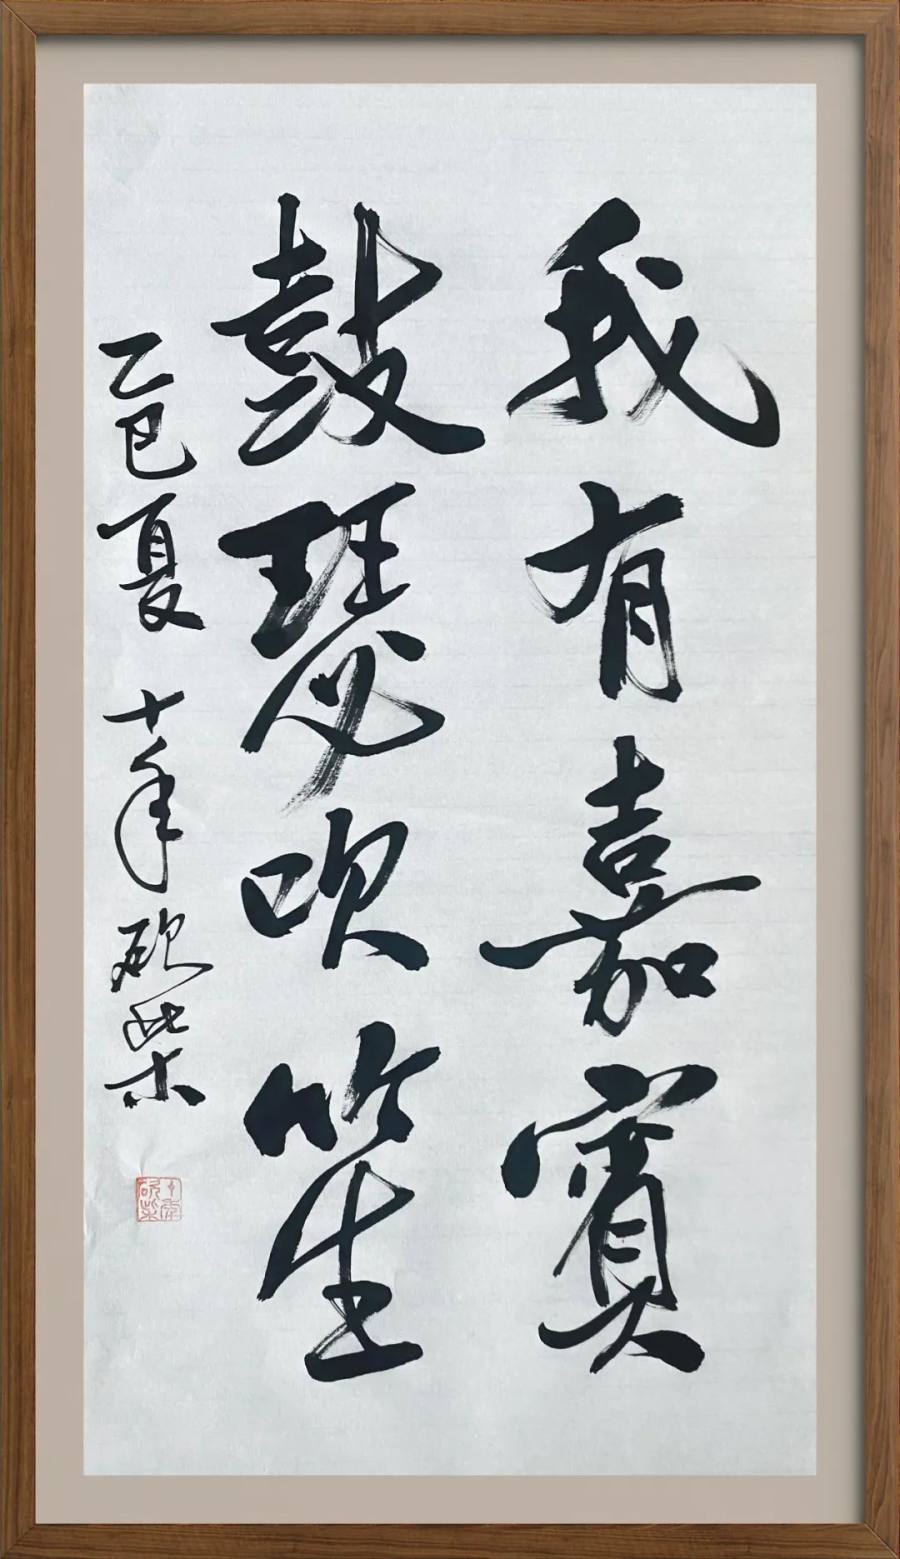 我有嘉賓
鼓瑟吹笙
乙巳夏 十年砍柴